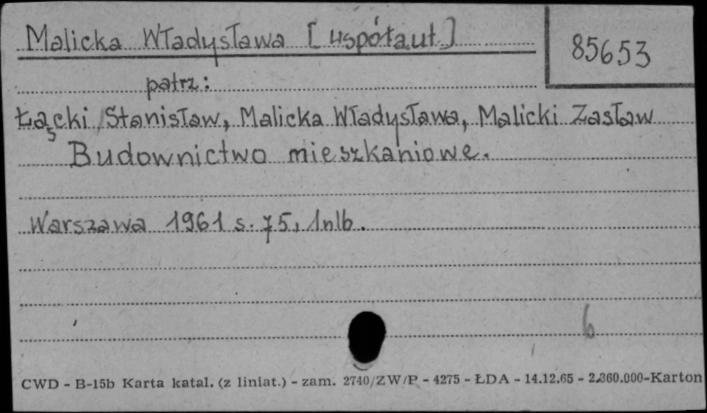 Malicka Władysława [współaut.]
85653
patrz:
Łącki Stanisław, Malicka Władysława, Malicki Zasław
Budownictwo mieszkaniowe.
Warszawa 1961 s. 75, 1nlb.
6
CWD - B-15b Karta katal. (z liniat.) - zam. 2740/ZW/P - 4275 - ŁDA - 14.12.65 - 2.360.000-Karton